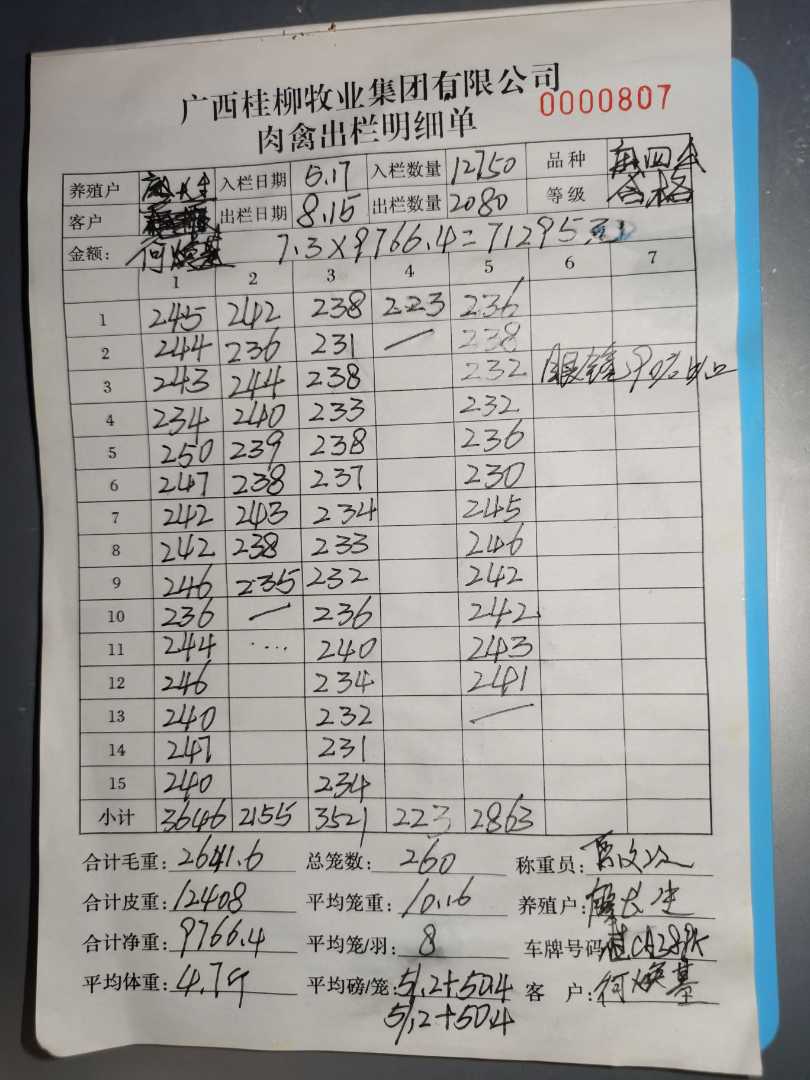 广西桂柳牧业集团有限公司
0000807
肉禽出栏明细单
养殖户 入栏日期 6.17 入栏数量 12750 品种
客户 出栏日期 8.15 出栏数量 2080 等级 合格
金额: 何焕基 7.3×9766.4=71295元
1 2 3 4 5 6 7
1 245 242 238 223 236
2 244 236 231 — 238
3 243 244 238 232
4 234 240 233 232
5 250 239 238 236
6 247 238 237 230
7 242 243 234 245
8 242 238 233 246
9 246 235 232 242
10 236 — 236 242
11 244 .... 240 243
12 246 234 241
13 240 232 —
14 247 231
15 240 234
小计 3646 2155 3521 223 2863
合计毛重: 2641.6 总笼数: 260 称重员:
合计皮重: 12408 平均笼重: 10.16 养殖户: 廖长生
合计净重: 9766.4 平均笼/羽: 8 车牌号码
平均体重: 4.79 平均磅/笼: 51.2+50.4 客 户: 何焕基
51.2+50.4